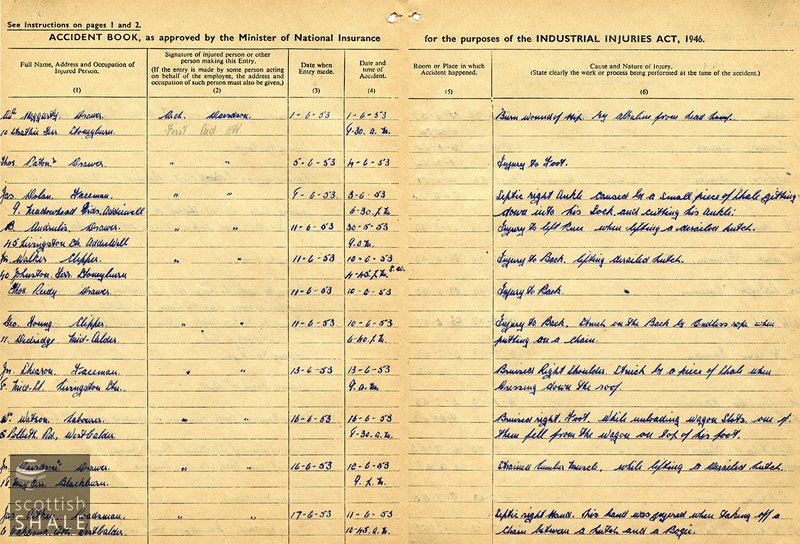 See Instructions on pages 1 and 2.
ACCIDENT BOOK, as approved by the Minister of National Insurance for the purposes of the INDUSTRIAL INJURIES ACT, 1946.
Full Name, Address and Occupation of Injured Person.
(1)
Signature of injured person or other person making this Entry.
(If the entry is made by some person acting on behalf of the employee, the address and occupation of such person must also be given.)
(2)
Date when Entry made.
(3)
Date and time of Accident.
(4)
Room or Place in which Accident happened.
(5)
Cause and Nature of Injury.
(State clearly the work or process being performed at the time of the accident.)
(6)
Heggarty Drawer. Arch. Davidson. 1-6-53 1-6-53 Burn wound of Hip. By alkaline from head lamp.
10 Terr. Stoneyburn. First Aid Att. 9-30. a.m.
Thos. Paton Drawer " " 5-6-53 4-6-53 Injury to Foot.
Jas Dolan. Faceman. " " 9-6-53 3-6-53 Septic right Ankle caused by a small piece of Shale getting
9. Meadowhead Addiewell 6-30. down into his Sock and cutting his Ankle.
B. Drawer. " " 11-6-53 30-5-53 Injury to left Knee when lifting a derailed hutch.
45 Livingston Addiewell 9.
Jn. Walker Clipper. " " 11-6-53 10-6-53 Injury to Back. lifting derailed hutch.
40 Johnston Terr. Stoneyburn 4-45.
Thos. Reidy Drawer 11-6-53 10-6-53 Injury to Back. "
Geo. Young Clipper " " 11-6-53 10-6-53 Injury to Back. Struck on the Back by Endless rope when
11. Dedridge Mid-Calder 6-40. putting on a chain.
Jn. Shearon. Faceman. " " 13-6-53 13-6-53 Bruised Right Shoulder. Struck by a piece of Shale when
8. Mid-St. Livingston Stn. 9. a.m. dressing down the roof.
Wm Watson Labourer. " " 16-6-53 16-6-53 Bruised right Foot. While unloading wagon Slats one of
5 Polbeth Rd, West Calder 8-30. a.m. them fell from the wagon on top of his foot.
Jn. Davidson Drawer " " 16-6-53 12-6-53 Strained lumbar muscle, while lifting a derailed hutch.
18 Terr. Blackburn. 9.
Jas. Roadsman. " " 17-6-53 11-6-53 Septic right Hand. His hand was injured when taking off a
6 Oakbank West Calder. 12-45. chain between a hutch and a Bogie.
scottish
SHALE